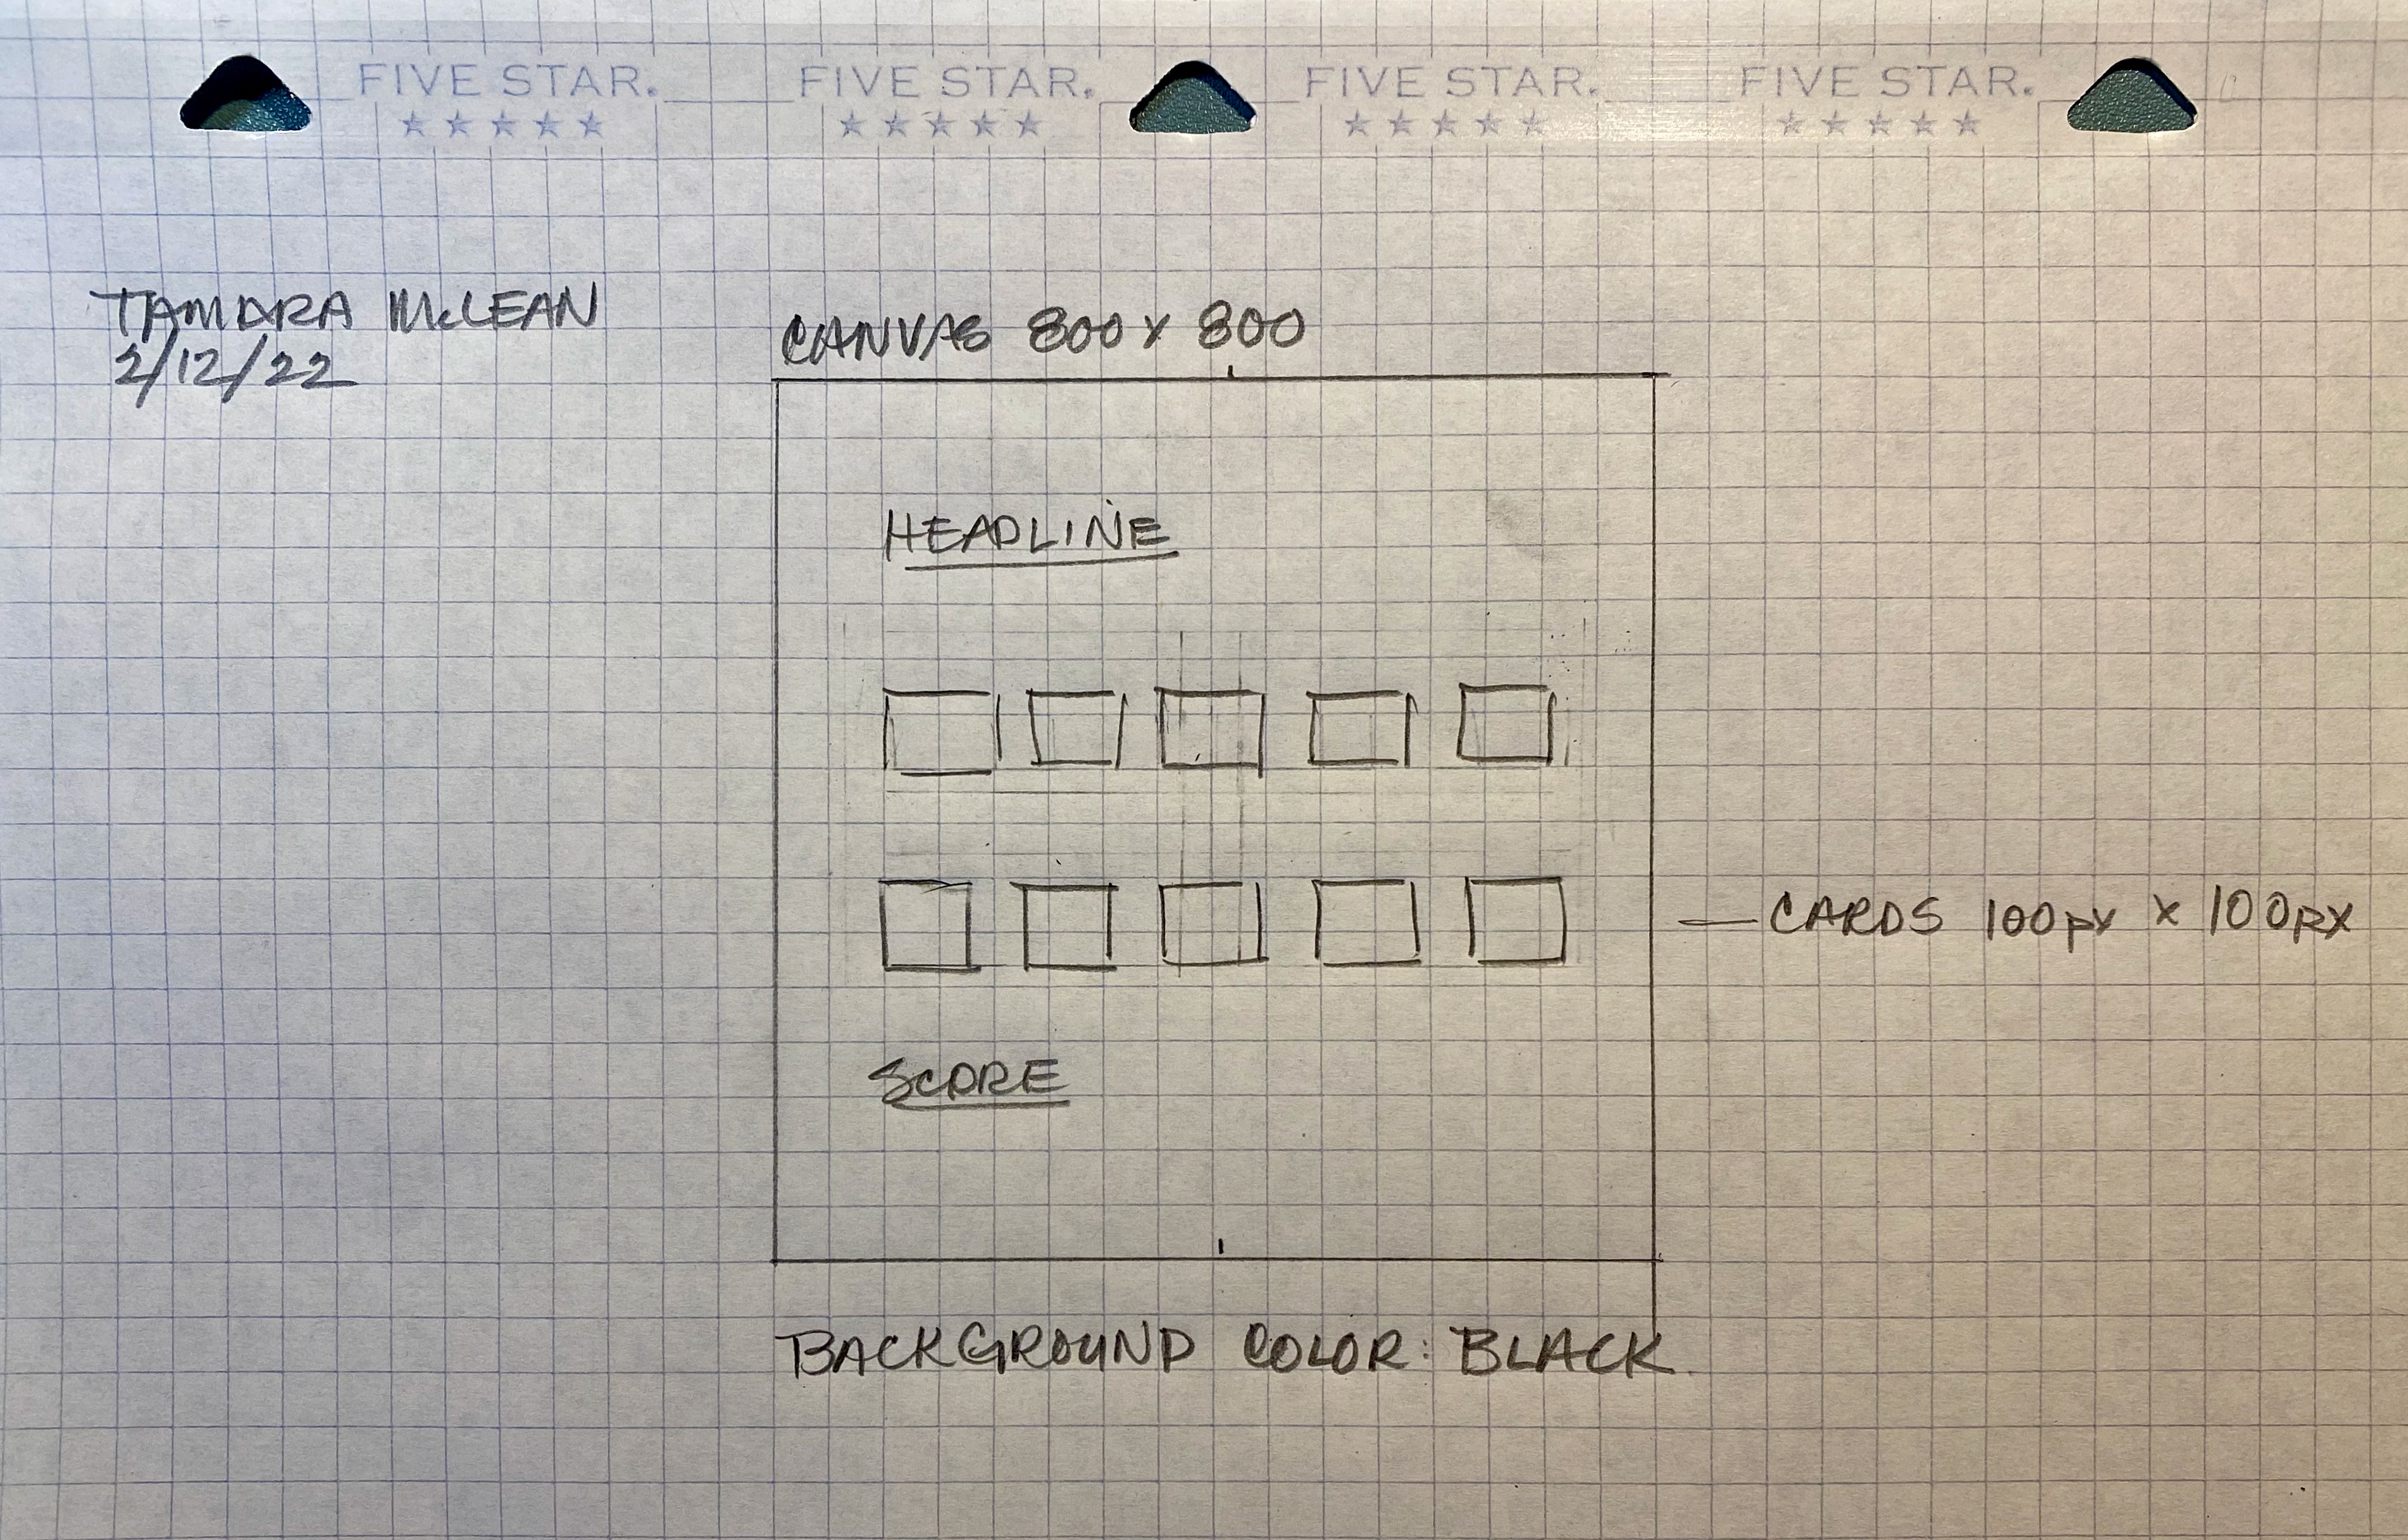 FIVE STAR. FIVE STAR. FIVE STAR. FIVE STAR.
TAMARA McLEAN
2/12/22
CANVAS 800 x 800
HEADLINE
CARDS 100px x 100px
SCORE
BACKGROUND COLOR: BLACK.